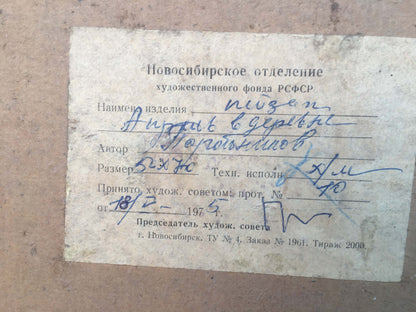 Новосибирское отделение
художественного фонда РСФСР
Наимен. изделия пейзаж
Апрель в деревне
Автор
Размер 5 х 70 Техн. исполн. х/м
Принято худож. советом: прот. № 10
от 18/V 1975 г.
Председатель худож. совета
г. Новосибирск. ТУ № 4. Заказ № 1961. Тираж 2000.